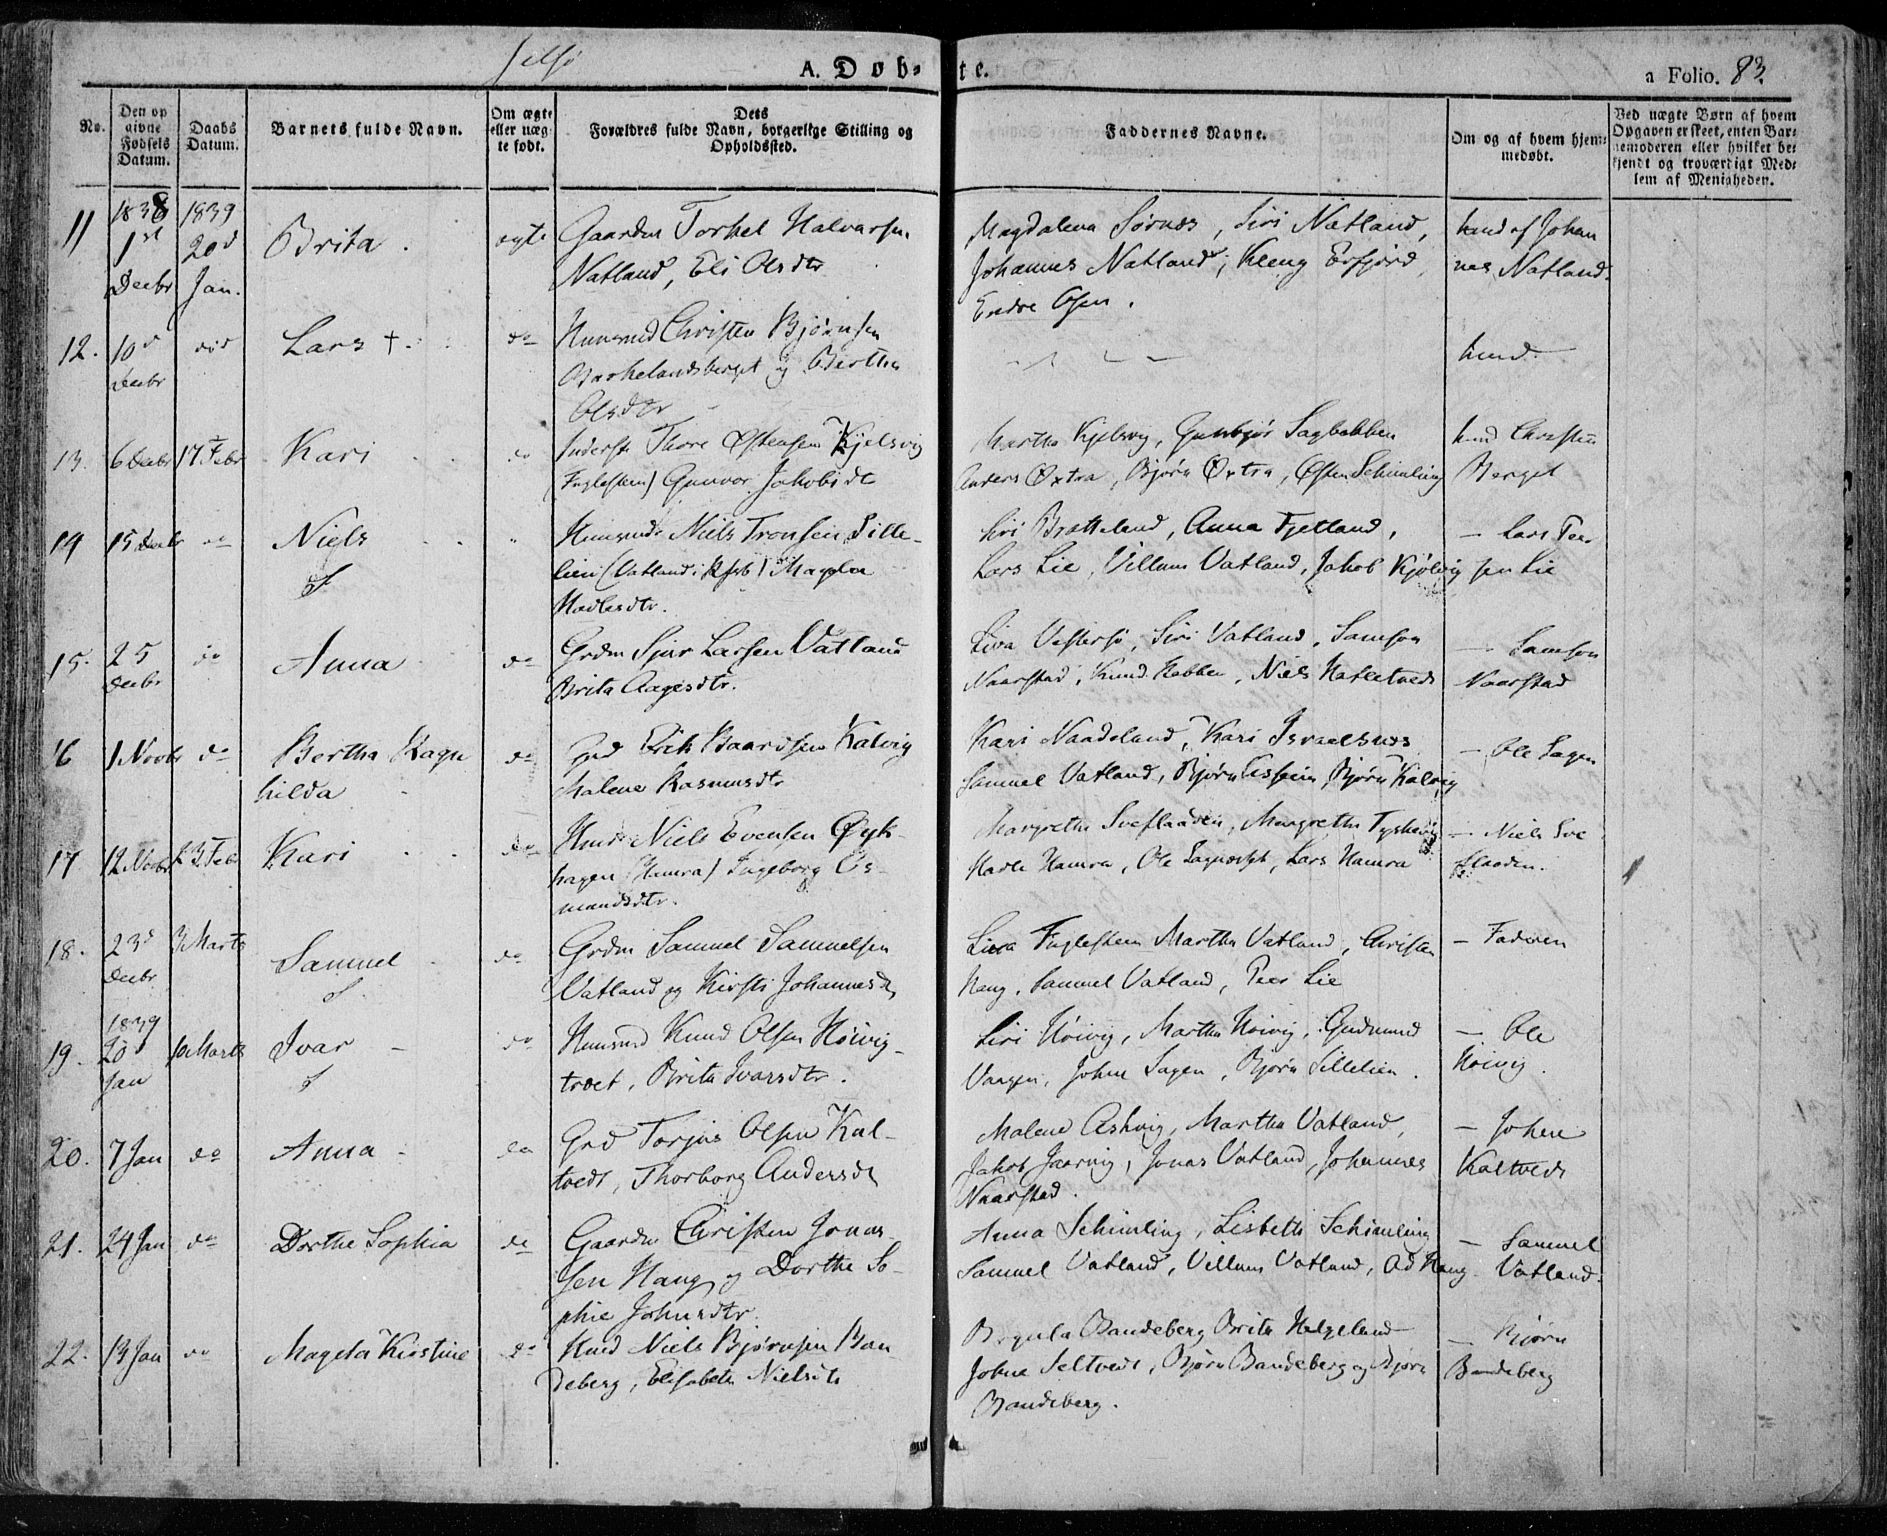 Jelsø
A. Døb-te.
a Folio. 83.
No.
Den op
givne
Fødsels
Datum.
Daabs
Datum.
Barnets fulde Navn.
Om ægte
eller uæg-
te født.
Dets
Forældres fulde Navn, borgerlige Stilling og
Opholdssted.
Faddernes Navne.
Om og af hvem hjem-
medøbt.
Ved uægte Børn af hvem
Opgaven er skeet, enten Bar-
nemoderen eller hvilket be-
kjendt og troværdigt Med-
lem af Menigheden.
11 1838 1st Decbr 1839 20d Jan. Brita . ægte Gaardm Torkel Halvorsen
Natland, Eli Olsdtr
Magdalena Sørnæs, Siri Natland,
Johannes Natland, Kleng Erfjord,
Endre Osen.
hmd af Johan
nes Natland.
12. 10d Decbr did Lars †. do Huusmd Christen Bjørnsen
Barkelandsberget og Bertha
Olsdtr
hmd.
13. 6 Decbr 17 Febr Kari do Inderst Thore Østensen Kjelsvig
(Fuglesteen) Gunvor Jakobsdt
Martha Kjelsvig, Gunbjør Sagbakken
Anders Øxtra, Bjørn Øxtra, Østen Schimling
hmd Christen
Berget
14 15 Decbr do Niels Huusmd Niels Tronsen Sille-
lien (Vatland) Magdla
Hadlesdtr.
Siri Bratteland, Anna Fjetland,
Lars Lie, Villum Vatland, Jakob Kjølvig
– Lars Peer
sen Lie
15. 25 Decbr do Anna do Grdm Sjur Larsen Vatland
Brita Aagesdtr.
Liva Vestersø, Siri Vatland, Samson
Naarstad, Knud Nabben, Niels Hatletvedt
– Samson
Naarstad
16 1 Novbr do Bertha Ragn
hilda do Grd Erik Baardsen Kalvig
Malene Rasmusdtr
Kari Naadeland, Kari Israelsnæs
Samuel Vatland, Bjørn Eissein, Bjørn Kalvig
– Ole Sagen
17 12 Novbr 23 Febr Kari do Hmd Niels Evensen Øyk-
hagen (Hamra) Ingeborg Os-
mundsdtr.
Margrethe Sveflaaden, Margrethe Tysvær
Hadle Hamra, Ole, Lars Hamra
– Niels Sve
flaaden.
18. 23d Decbr 3 Marts Samuel do Grdm Samuel Samuelsen
Vatland og Kirsti Johannesdt
Liva Fuglesteen Martha Vatland, Christen
Haug, Samuel Vatland, Peer Lie
– Faderen
19. 1839 20 Jan 10 Marts Ivar do Huusmd Knud Olsen Høivig-
træet, Brita Ivarsdtr.
Siri Høivig, Martha Hoivig, Gudmund
Vangen, Johne Sagen, Bjørn Sillelien.
– Ole
Høivig.
20. 7 Jan do Anna do Grd Torjus Olsen Kal-
tvedt, Thorborg Andersdt
Malene Askvig, Martha Vatland,
Jakob Jaarvig, Jonas Vatland, Johannes
Naarstad.
– Johne
Kaltvedt
21. 24 Jan do Dorthe Sophia do Gaardm Christen Jonas-
sen Haug og Dorthe So-
phie Johnsdtr
Anna Schimling, Lisbeth Schimling
Samuel Vatland, Villum Vatland, Ad Haug
– Samuel
Vatland.
22. 13 Jan do Magela Kirstine do Hmd Niels Bjørnsen Ban
deberg, Elisabeth Nielsdt
Bandeberg Brita Helgeland
Johne Seltvedt, Bjørn Bandeberg og Bjørn
Bandeberg.
– Bjørn
Bandeberg